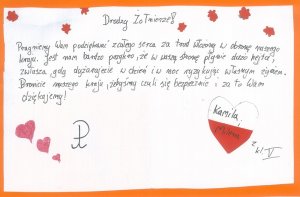 Drodzy Żołnierze!
Pragniemy Wam podziękować z całego serca za trud włożony w obronę naszego
kraju. Jest nam bardzo przykro, że w waszą stronę płynie dużo hejtu,
zwłaszcza, gdy dyżurujecie w dzień i w nocy ryzykując własnym życiem.
Bronicie naszego kraju, żebyśmy czuli się bezpiecznie i za to Wam
dziękujemy!
Kamila,
Milena
z kl V